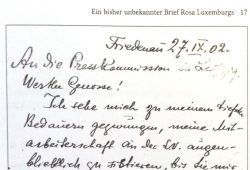 Ein bisher unbekannter Brief Rosa Luxemburgs 17
Friedenau 27.IX.02.
An die Presskommission in Leipzig
Werter Genosse!
Ich sehe mich zu meinem tiefsten
Bedauern gezwungen, meine Mit-
arbeiterschaft an der LV. augen-
blicklich zu sistieren, bis Sie mir